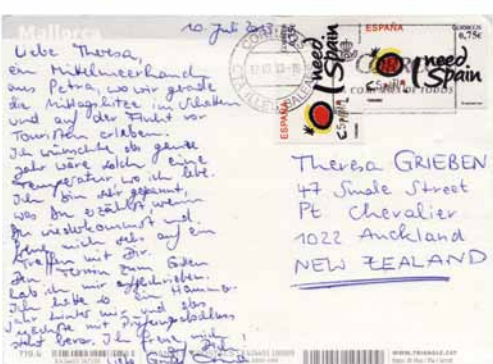 Mallorca
10. Juli
Liebe Theresa,
ein Mittelmeerhauch
aus Petra, wo wir gerade
die Mittagshitze im Schatten
und auf der Flucht vor
Touristen erleben.
Ich wünschte das ganze
Jahr wäre solch eine
Temperatur wo ich lebe.
Ich bin sehr gespannt,
was Du erzählst, wenn
Du wiederkommst und
freue mich sehr auf ein
Treffen mit Dir.
Den Termin zum Essen
hab ich mir aufgeschrieben.
Ich hatte so ein Hammer-
Jahr hinter mir und das
nächste mit Prüfungsabschluss
steht bevor. Ich freue mich
Liebe
ESPAÑA
CORREOS
0,75€
I need
Spain
ESPAÑA
0,35€
I need
Spain
Theresa GRIEBEN
47 Smale Street
Pt. Chevalier
1022 Auckland
NEW ZEALAND
WWW.TRIANGLE.CAT